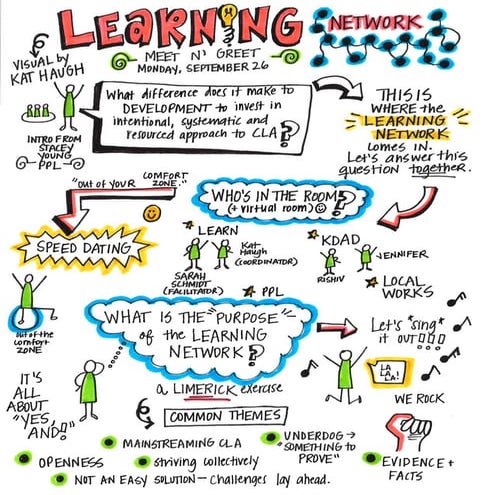 LEARNING
NETWORK
VISUAL by
KAT HAUGH
MEET N' GREET
MONDAY, SEPTEMBER 26
INTRO FROM
STACEY
YOUNG
PPL
What difference does it make to
DEVELOPMENT to invest in
intentional, systematic and
resourced approach to CLA?
THIS IS
WHERE the
LEARNING
NETWORK
COMES IN.
Let's answer this
question together.
"out of your COMFORT
ZONE."
SPEED DATING
WHO'S IN THE ROOM?
(+ virtual room)
LEARN
Kat
Haugh
(COORDINATOR)
SARAH
SCHMIDT
(FACILITATOR)
PPL
KDAD
JENNIFER
RISHIV
LOCAL
WORKS
out of the
comfort
ZONE
WHAT IS THE "PURPOSE"
of the LEARNING
NETWORK?
Let's "sing"
it out!!!
LA
LA
LA!
WE ROCK
IT'S
ALL
ABOUT
"YES,
AND!"
a LIMERICK exercise
COMMON THEMES
MAINSTREAMING CLA
UNDERDOG →
"SOMETHING to
PROVE"
OPENNESS
striving collectively
EVIDENCE +
FACTS
NOT AN EASY SOLUTION - challenges lay ahead.